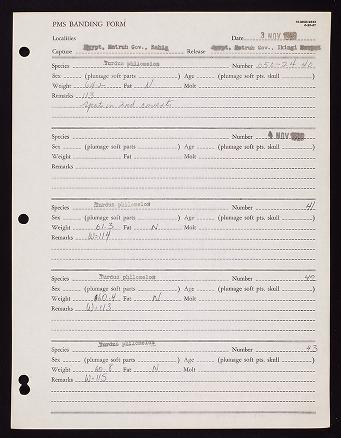 PMS BANDING FORM
Localities Date 3 NOV
Capture Egypt, Matruh Gov., Bahig Release Egypt, Matruh Gov., Ikingi
Species Turdus philomelos Number 40
Sex (plumage soft parts ) Age (plumage soft pts. skull )
Weight Fat N Molt
Remarks 113
Species Number 4 NOV
Sex (plumage soft parts ) Age (plumage soft pts. skull )
Weight Fat Molt
Remarks
Species Turdus philomelos Number 41
Sex (plumage soft parts ) Age (plumage soft pts. skull )
Weight 61.3 Fat N Molt
Remarks W=114
Species Turdus philomelos Number 42
Sex (plumage soft parts ) Age (plumage soft pts. skull )
Weight 60.4 Fat N Molt
Remarks W=113
Species Turdus philomelos Number 43
Sex (plumage soft parts ) Age (plumage soft pts. skull )
Weight Fat N Molt
Remarks W=115